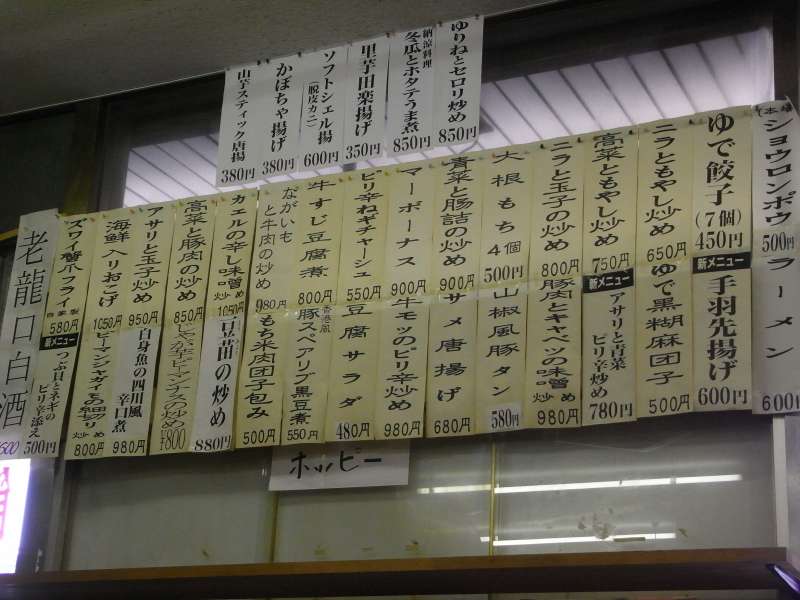 ゆりねとセロリ炒め 850円
納涼料理
冬瓜とホタテうま煮 850円
里芋田楽揚げ 350円
ソフトシェル揚 (脱皮カニ) 600円
かぼちゃ揚げ 380円
山芋スティック唐揚 380円
ショウロンポウ 500円
ラーメン 600円
ゆで餃子 (7個) 450円
新メニュー
手羽先揚げ 600円
ニラともやし炒め 650円
ゆで黒糊麻団子 500円
高菜ともやし炒め 750円
新メニュー
アサリと青菜ピリ辛炒め 780円
ニラと玉子の炒め 800円
豚肉とキャベツの味噌炒め 980円
大根もち 4個 500円
山椒風豚タン 580円
青菜と腸詰の炒め 900円
サメ唐揚げ 680円
マーボーナス 900円
牛モツのピリ辛炒め 980円
ピリ辛ねぎチャーシュ 550円
豆腐サラダ 480円
牛すじ豆腐煮 800円
香港風
豚スペアリブ黒豆煮 550円
ながいもと牛肉の炒め 980円
もち米肉団子包み 500円
カエルの辛し味噌炒め 1050円
豆苗の炒め 880円
高菜と豚肉の炒め 850円
じゃが芋ピーマンナスの炒め ¥800
アサリと玉子炒め 950円
白身魚の四川風辛口煮 980円
海鮮入りおこげ 1050円
ピーマンジャガイモの細切り炒め 800円
ズワイ蟹爪フライ 自家製 580円
新メニュー
つぶ貝とネギのピリ辛添え 500円
老龍口白酒
600
ホッピー